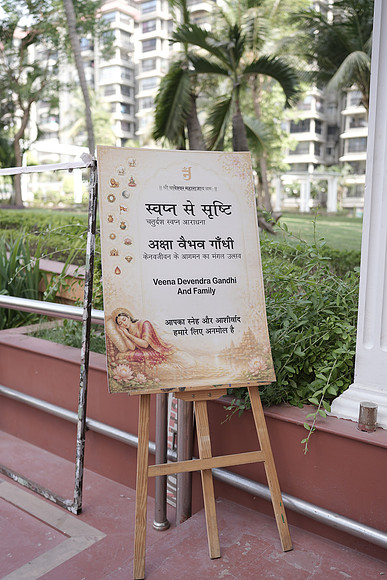 स्वप्न से सृष्टि
चतुर्दश स्वप्न आराधना
अक्षा वैभव गाँधी
के नवजीवन के आगमन का मंगल उत्सव
Veena Devendra Gandhi
And Family
आपका स्नेह और आशीर्वाद
हमारे लिए अनमोल है